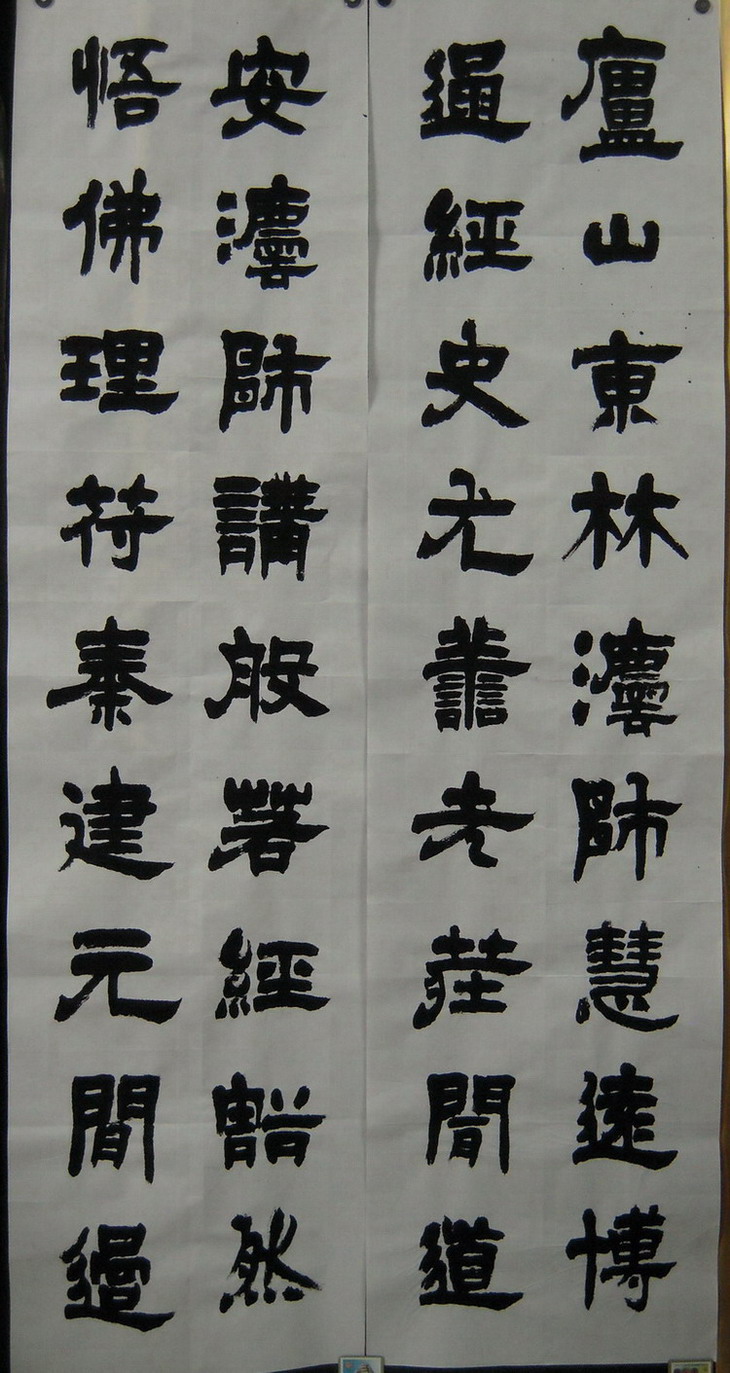 廬山東林灋師慧遠博
通經史尤善老莊聞道
安灋師講般若經豁然
悟佛理符秦建元間過